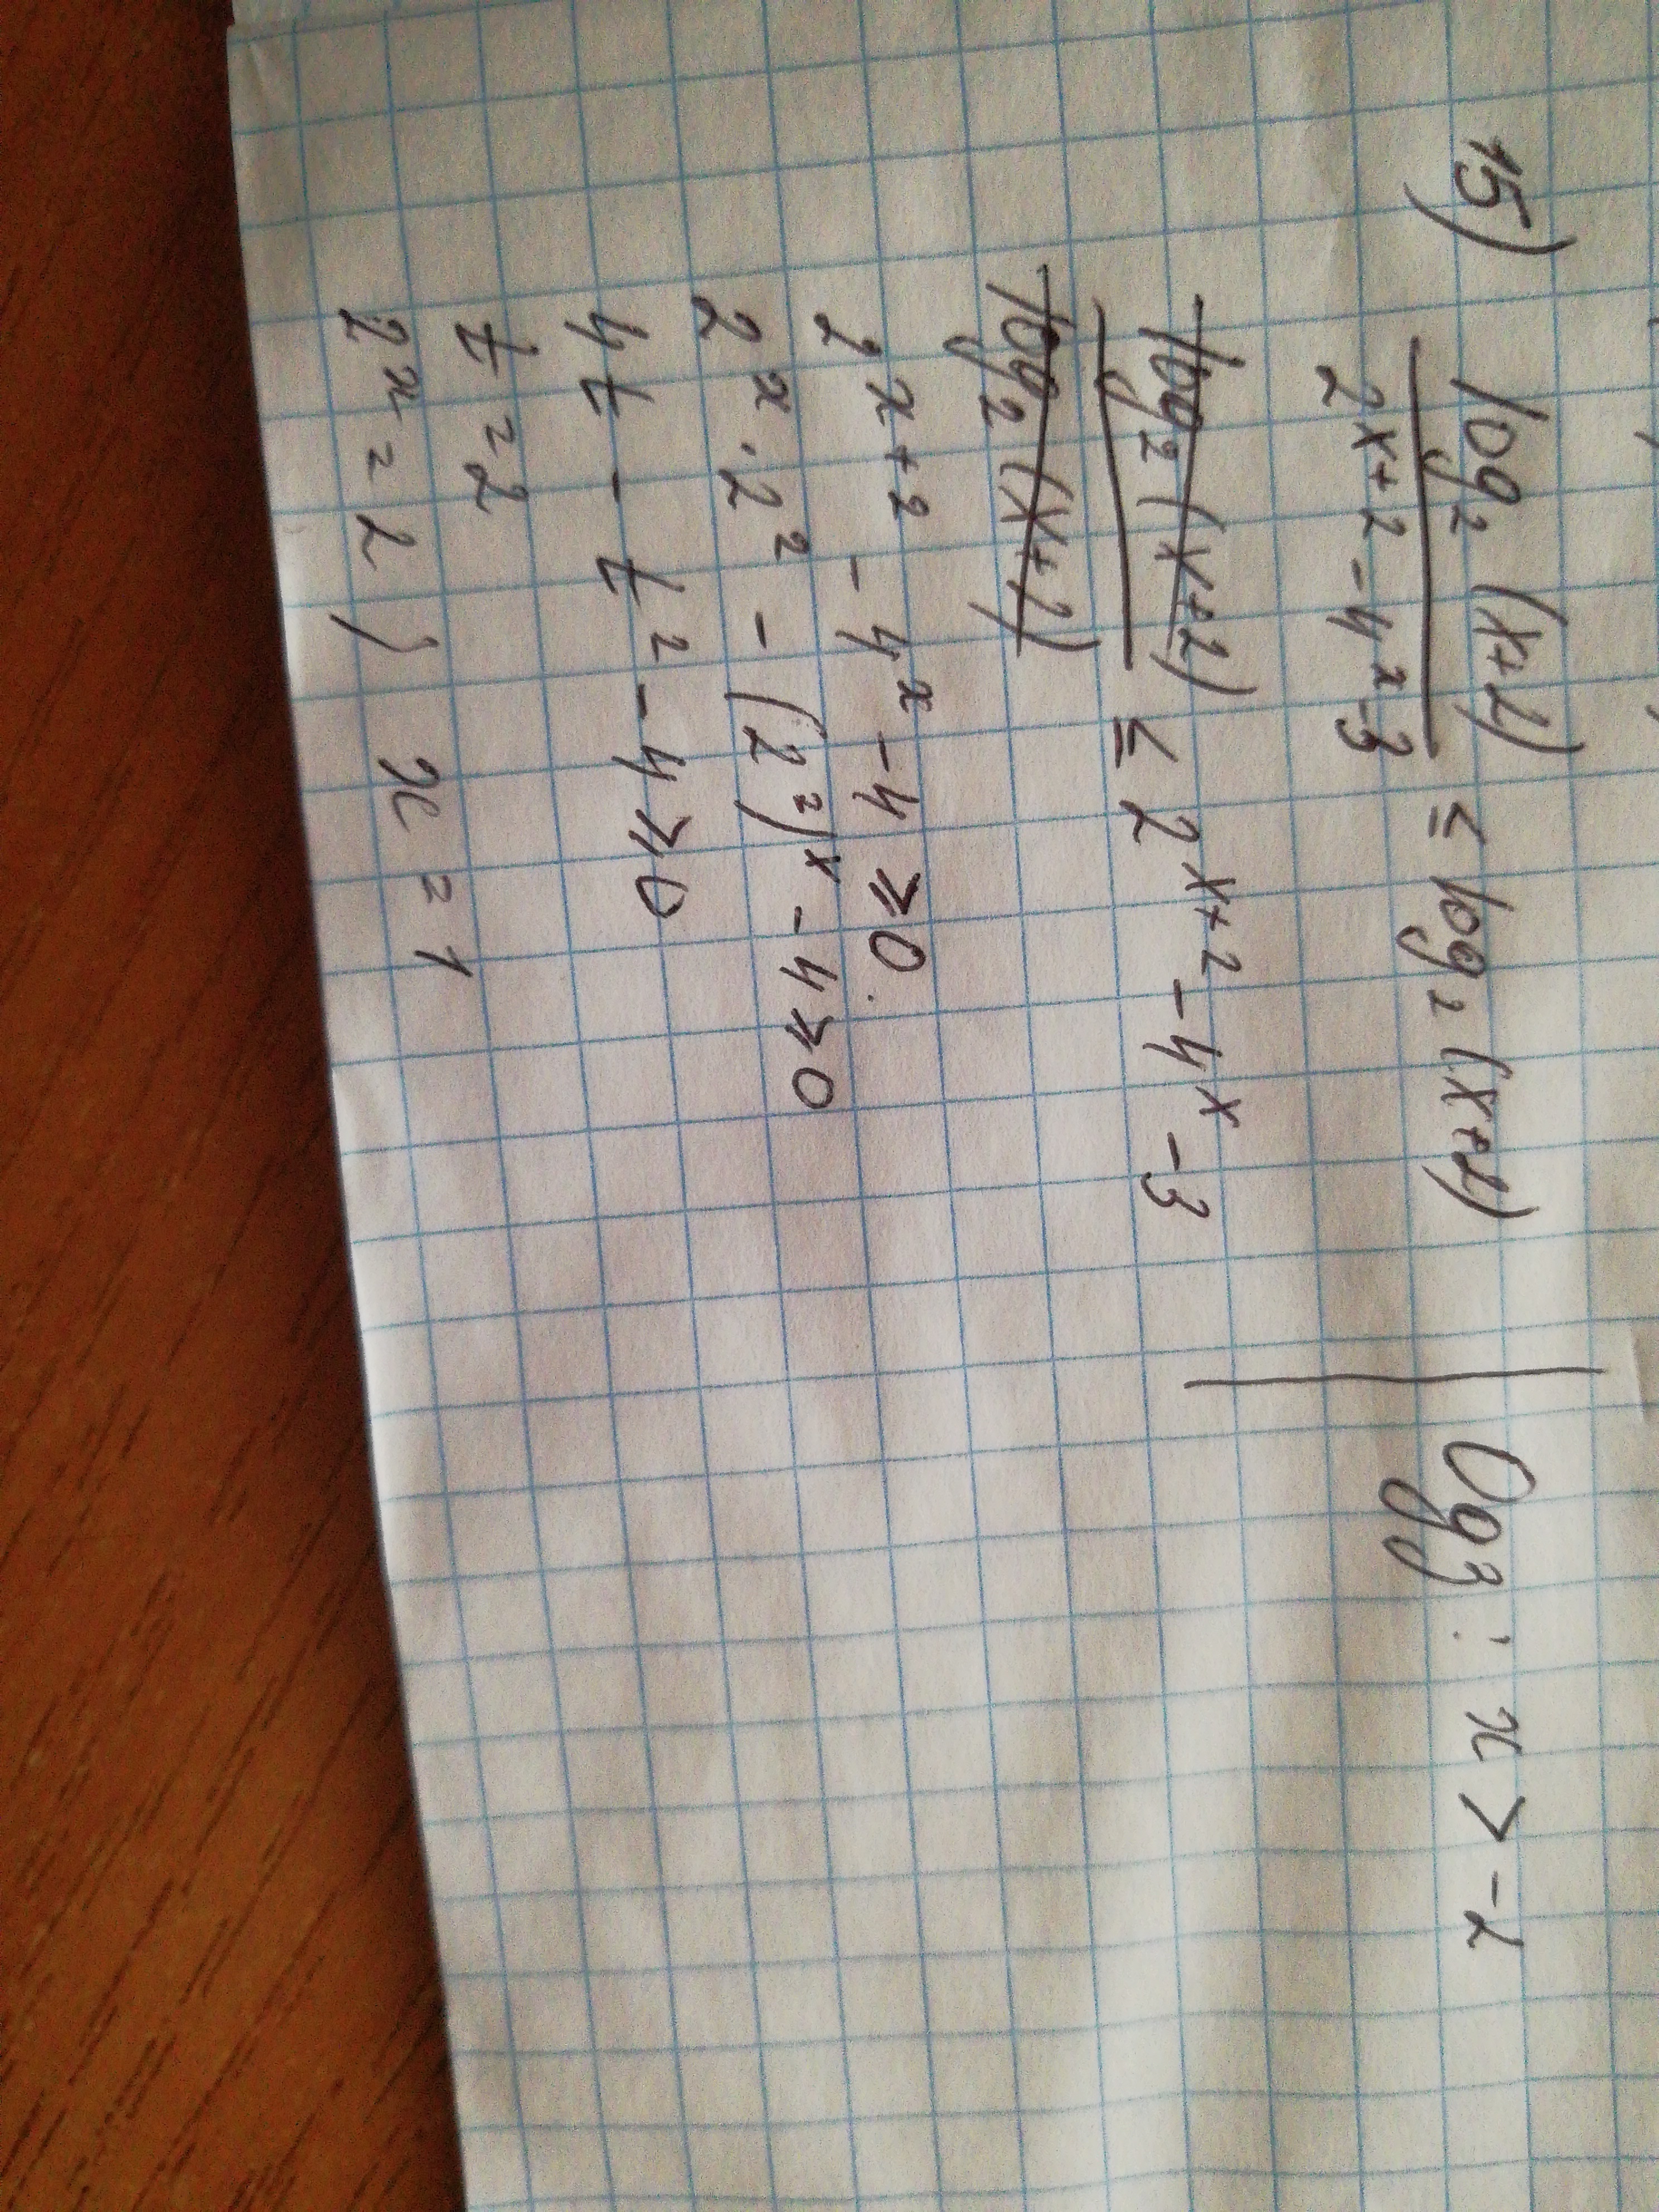 15) log₂(x+2) / 2ˣ⁺² - 4ˣ - 3 ≤ log₂(x+2) | Одз: x > -2
log₂(x+2) / log₂(x+2) ≤ 2ˣ⁺² - 4ˣ - 3
2ˣ⁺² - 4ˣ - 4 ⩾ 0
2ˣ · 2² - (2²)ˣ - 4 ⩾ 0
4t - t² - 4 ⩾ 0
t = 2
2ˣ = 2 ) x = 1